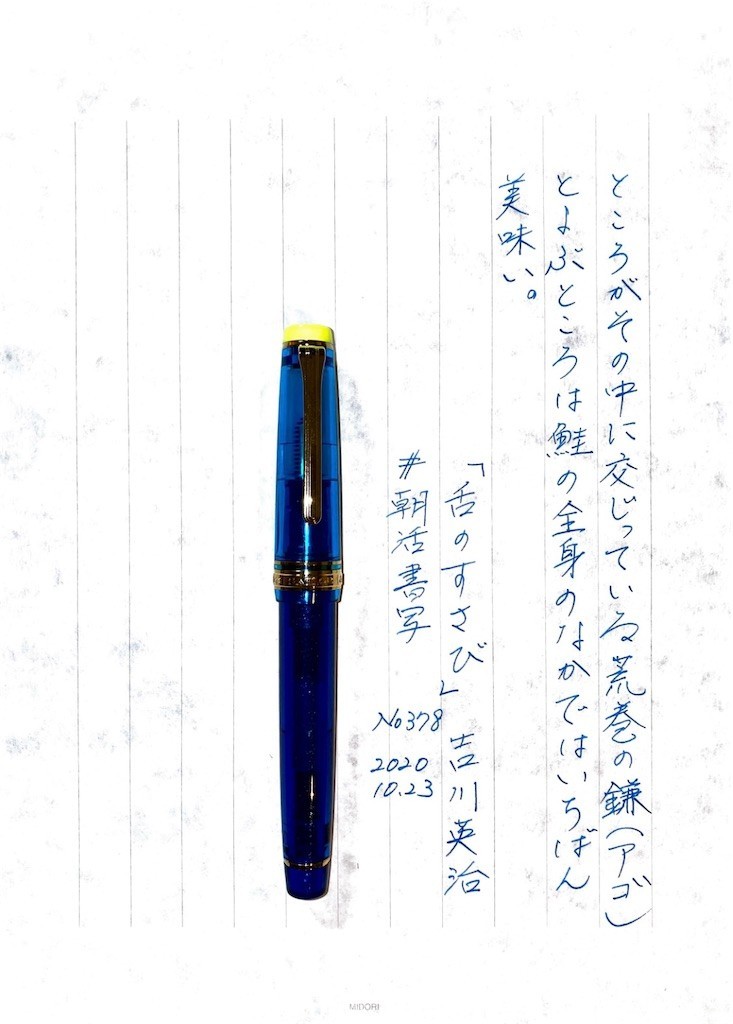 ところがその中に交じっている荒巻の鎌(アゴ)
とよぶところは鮭の全身のなかではいちばん
美味い。
「舌のすさび」 吉川英治
#朝活書写
No378
2020
10.23
MIDORI